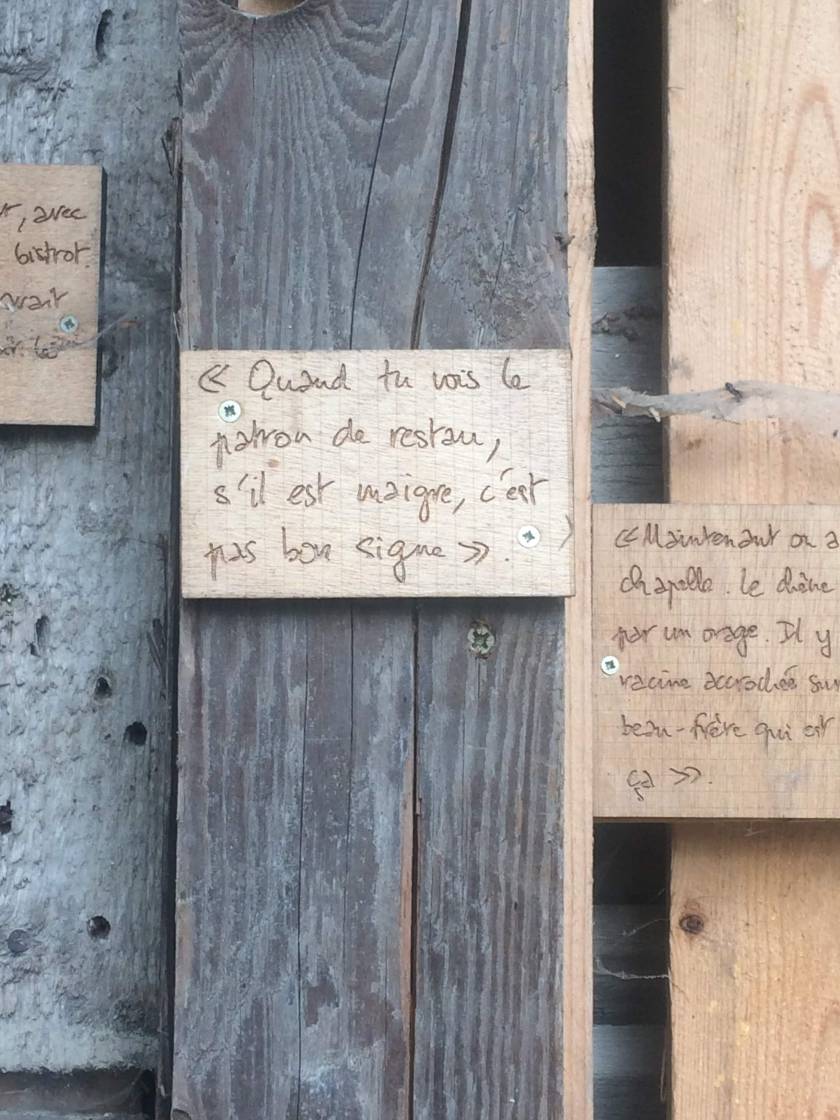 , avec
bistrot.
« Quand tu vois le
patron de restau,
s'il est maigre, c'est
pas bon signe ».
« Maintenant on a
chapelle. Le chêne
par un orage. Il y
racine accrochée sur
beau-frère qui est
ça ».